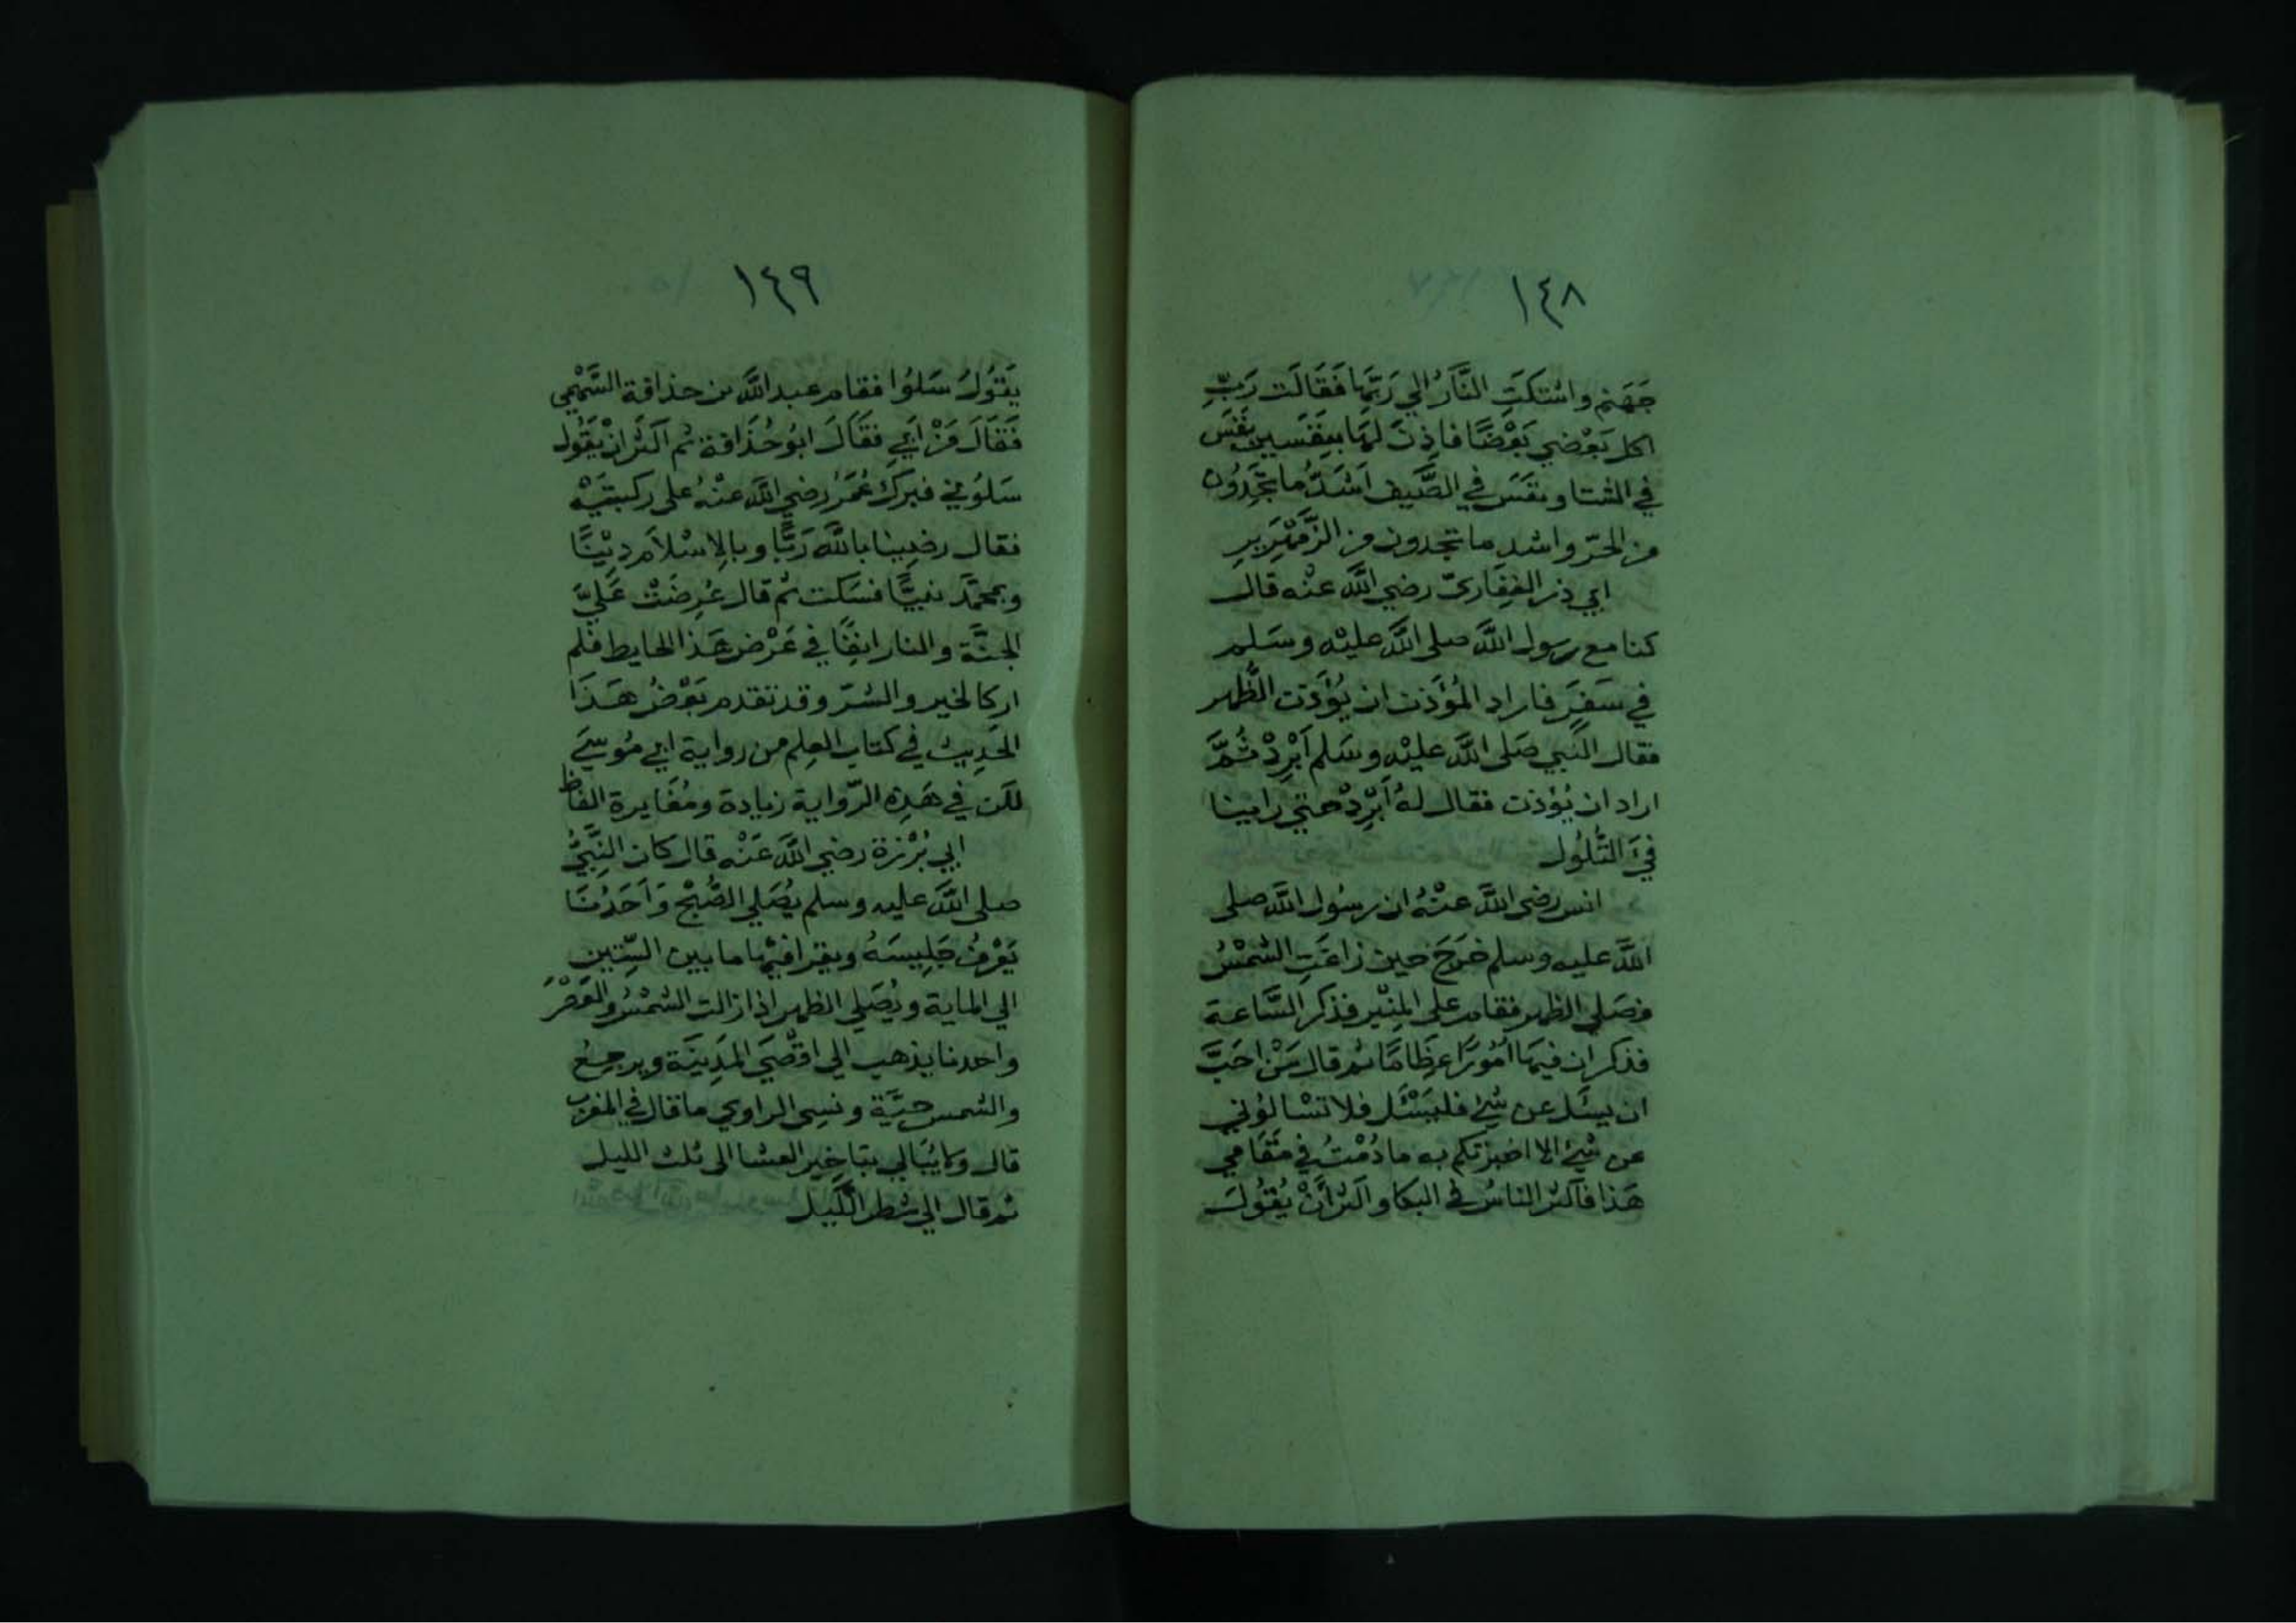 ١٤٨
جَهَنم واشتكَتِ النَّارُ الي رَبِّهَا فَقَالَت رَبِّ
اكل بَعْضي بَعْضًا فاذِنَ لهَا بِنَفَسين نَفَسَ
في الشتا ونفَسَ في الصَّيف اَشَدُّ ما تَجِدُون
من الحرّ واشد ما تجدون من الزَّمْهَرِير
ابي ذر الغِفَاريّ رضي اللَّه عنْه قال
كنا مع رسول اللَّه صلى اللَّه عليْه وسَلم
في سَفَرٍ فاراد المُؤذن ان يُؤَذن الظُّهر
فقال النَّبي صَلى اللَّه عليْه وسَلم اَبْرِدْ ثُمَّ
اراد ان يُؤذن فقال لهُ اَبْرِدْ حتي راينا
فيَ التُّلُول
انس رضى اللَّه عنْهُ ان رسُول اللَّه صلى
اللَّه عليه وسلم خَرَجَ حين زاغَتِ الشمْسُ
فصَلي الظهر فقام على المِنْبر فذكر السَّاعة
فذكر ان فيهَا اُمُورًا عِظَامًا ثم قال مَنْ احَبَّ
ان يسئَل عن شئ فليَسْئَل فلا تسْالوُني
عن شئ الا اخبرتكم به ما دُمْتُ في مَقَامي
هَذا فاكثر الناسُ في البكا واكثر أَنْ يُقوُلَ
١٤٩
يَقوُلُ سَلوُا فقام عبد اللَّه بن حذافة السَّهْمي
فَقَالَ مَنْ اَبي فقَالَ ابوُ حُذَافة ثم اكثَر انْ يَقُول
سَلوُني فبركَ عُمَرُ رضي اللَّه عنْهُ على ركبتيْه
فقال رضِينا باللَّه رَبًّا وبالإسْلاَم دِيْنًا
وبمحَمَّد نبيًّا فسَكت ثم قال عُرِضَتْ عَليَّ
الجنَّة والنار انِفًا في عَرْض هَذا الحايط فلم
ار كالخير والشرّ وقد تقدم بَعْضُ هَذَا
الحَديث في كتاب العِلم من رواية ابي موُسيَ
لكن في هَذِه الرّواية زيادة ومُغَايرة الفاظ
ابي بُرْزة رضي اللَّه عَنْه قال كان النَّبِيُّ
صلى اللَّه عليه وسلم يُصَلي الصُّبْح وَاَحَدُنَا
يَعْرفُ جَلِيسَهُ ويقرا فيْهَا ما بين السِّتين
الي الماية ويُصَلي الظهر اذا زالت الشمْسُ والعَصْرَ
واحدنا يذهب الي اقْصَي المَدِينَة ويرجعُ
والشمس حيَّة ونسِى الراوي ما قال في المغرب
قال ولا يُبَالي بتاخِير العشا الى ثلث الليل
ثم قال الي شطر اللَّيل